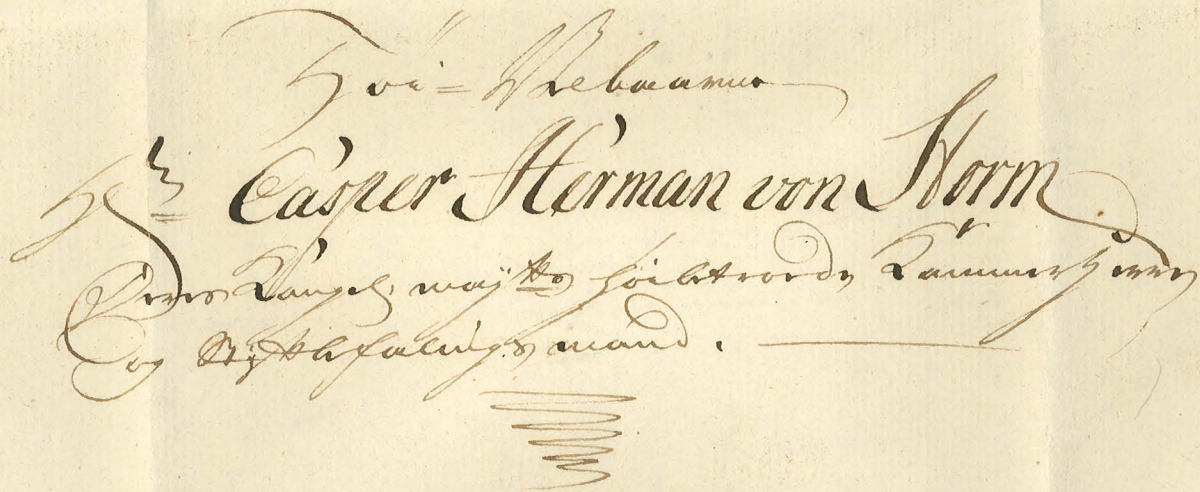 Höi-Velbaarne
Hr Casper Herman von Storm
Deres Kongel. mayts höibetroede Kammer Herre
og Stiftbefalingsmand.